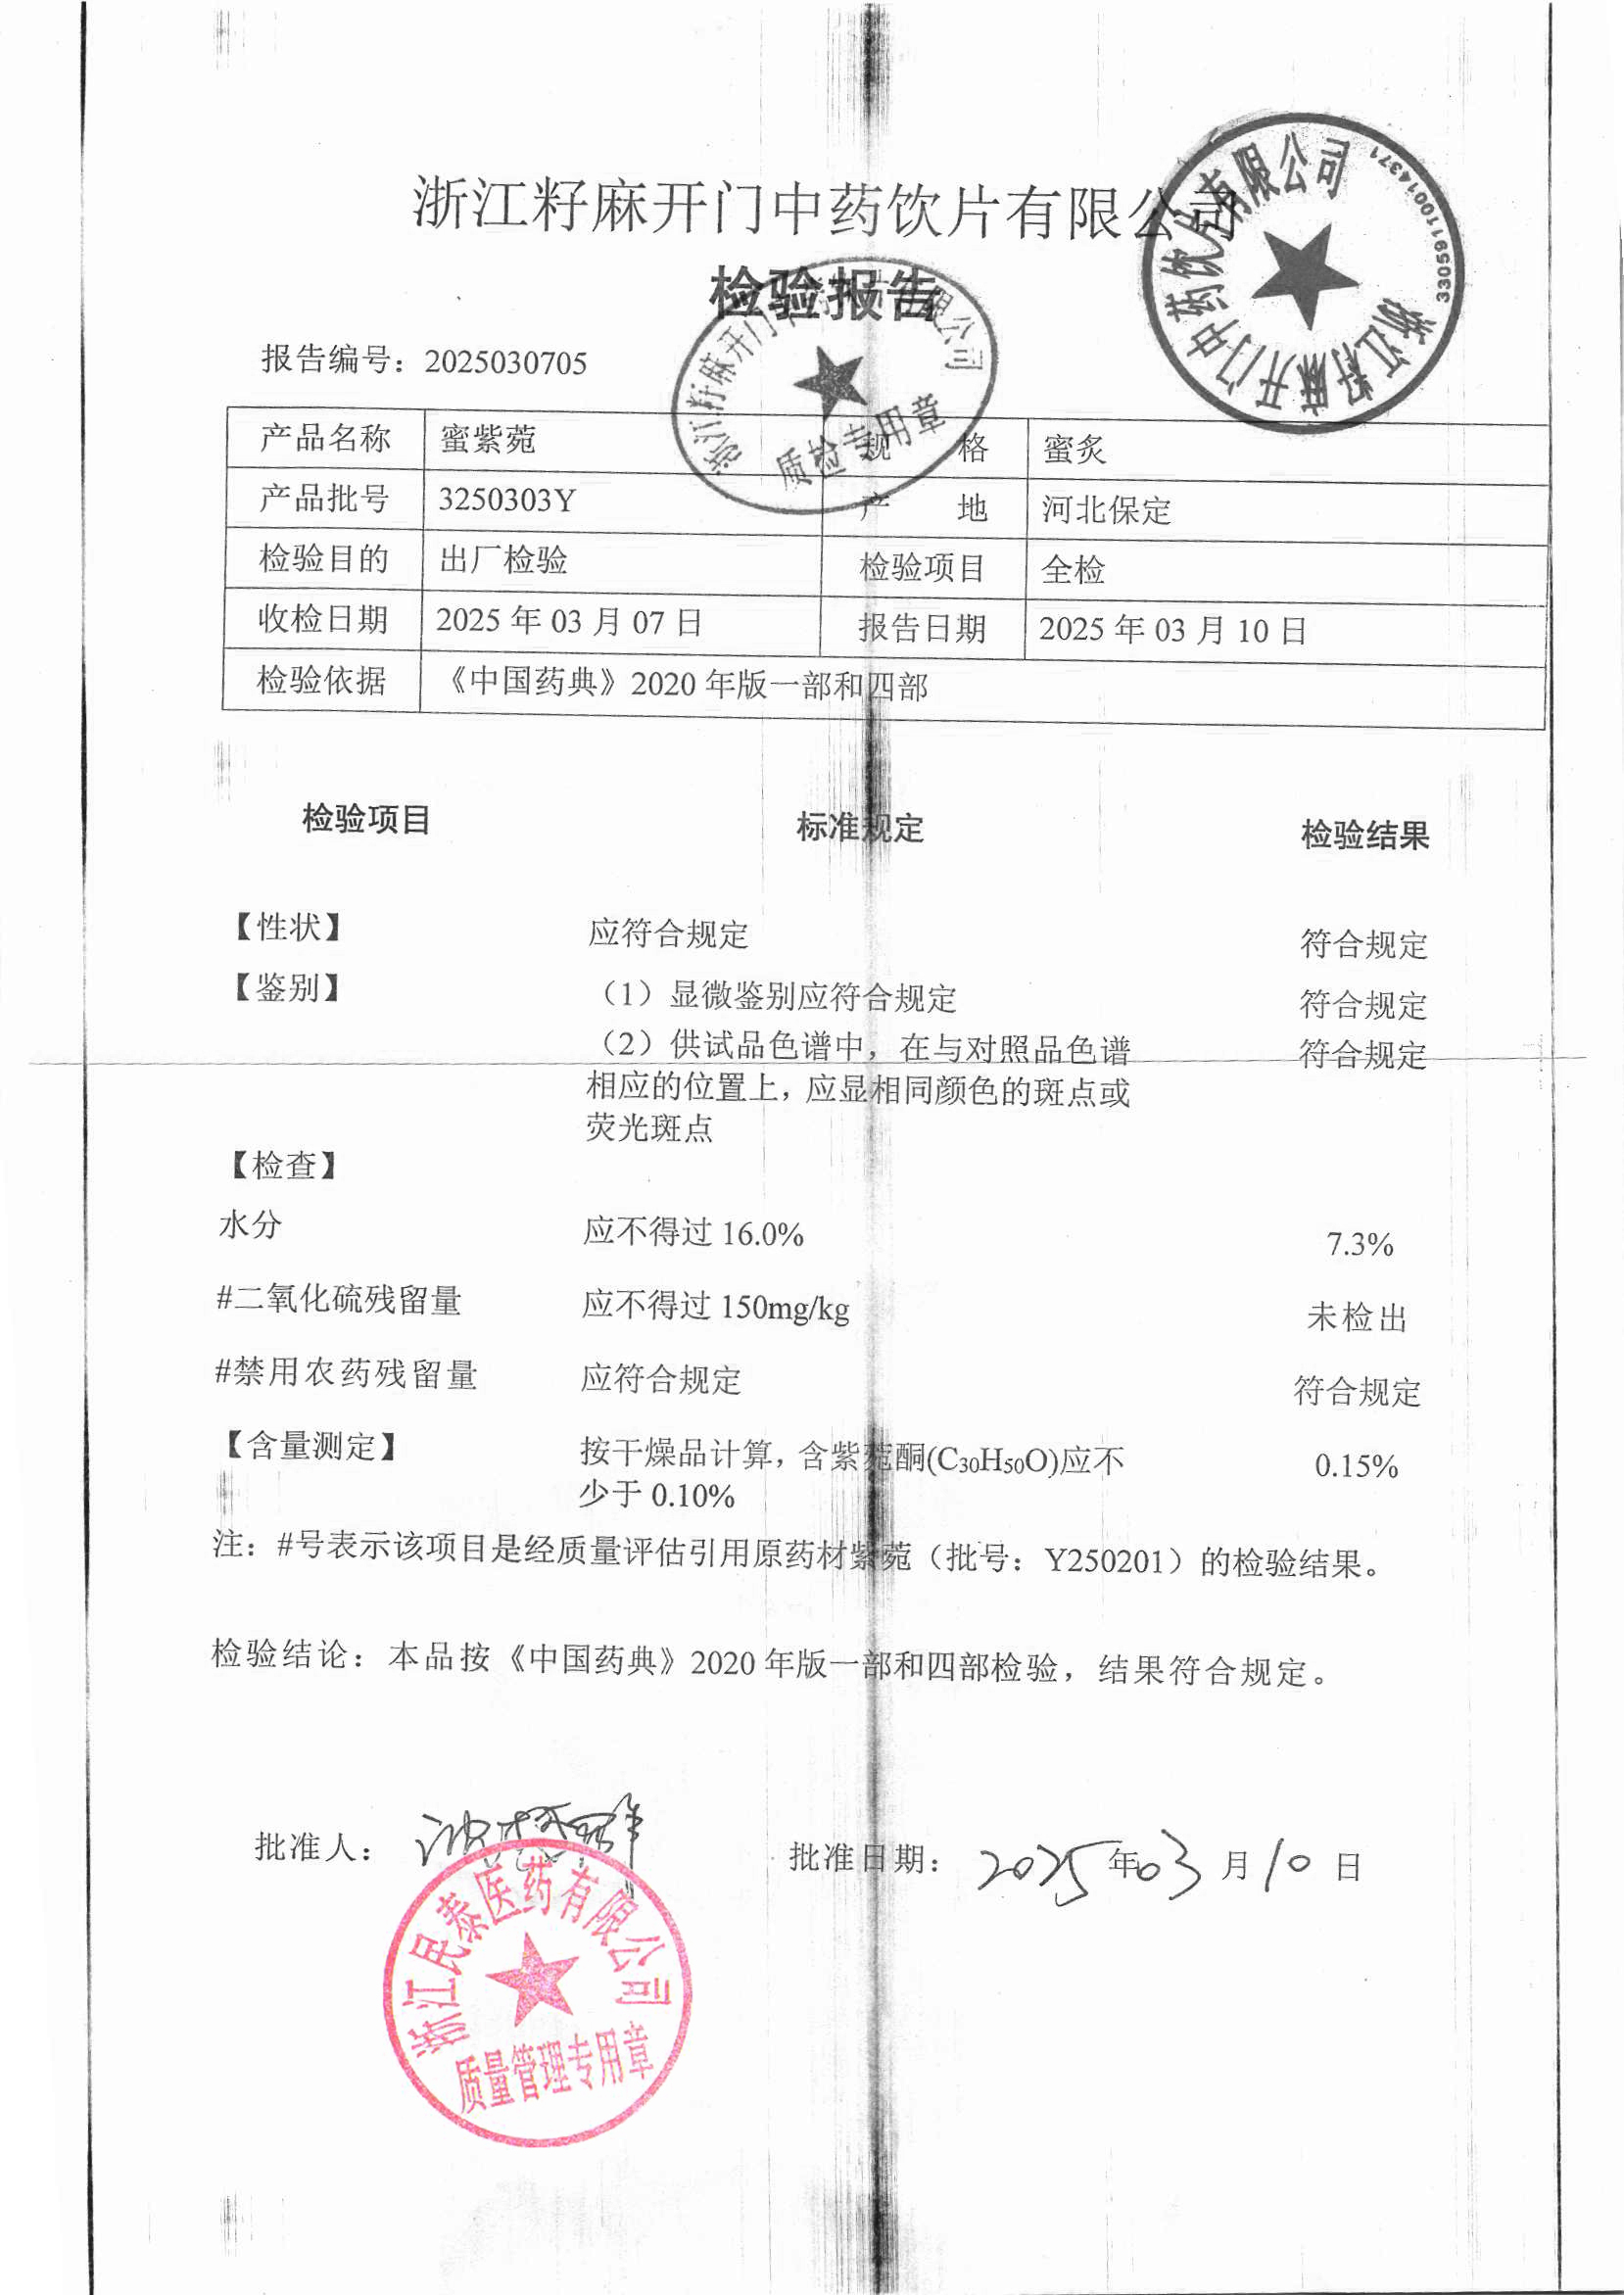 浙江籽麻开门中药饮片有限公司
检验报告
报告编号：2025030705
浙江籽麻开门中药饮片有限公司
33059110014371
浙江籽麻开门中药饮片有限公司
质检专用章
产品名称 蜜紫菀 规格 蜜炙
产品批号 3250303Y 产地 河北保定
检验目的 出厂检验 检验项目 全检
收检日期 2025 年 03 月 07 日 报告日期 2025 年 03 月 10 日
检验依据 《中国药典》2020 年版一部和四部
检验项目 标准规定 检验结果
【性状】 应符合规定 符合规定
【鉴别】 （1）显微鉴别应符合规定 符合规定
（2）供试品色谱中，在与对照品色谱 符合规定
相应的位置上，应显相同颜色的斑点或
荧光斑点
【检查】
水分 应不得过 16.0% 7.3%
#二氧化硫残留量 应不得过 150mg/kg 未检出
#禁用农药残留量 应符合规定 符合规定
【含量测定】 按干燥品计算，含紫菀酮(C30H50O)应不 0.15%
少于 0.10%
注：#号表示该项目是经质量评估引用原药材紫菀（批号：Y250201）的检验结果。
检验结论：本品按《中国药典》2020 年版一部和四部检验，结果符合规定。
批准人： 批准日期：2025 年 03 月 10 日
浙江民泰医药有限公司
质量管理专用章